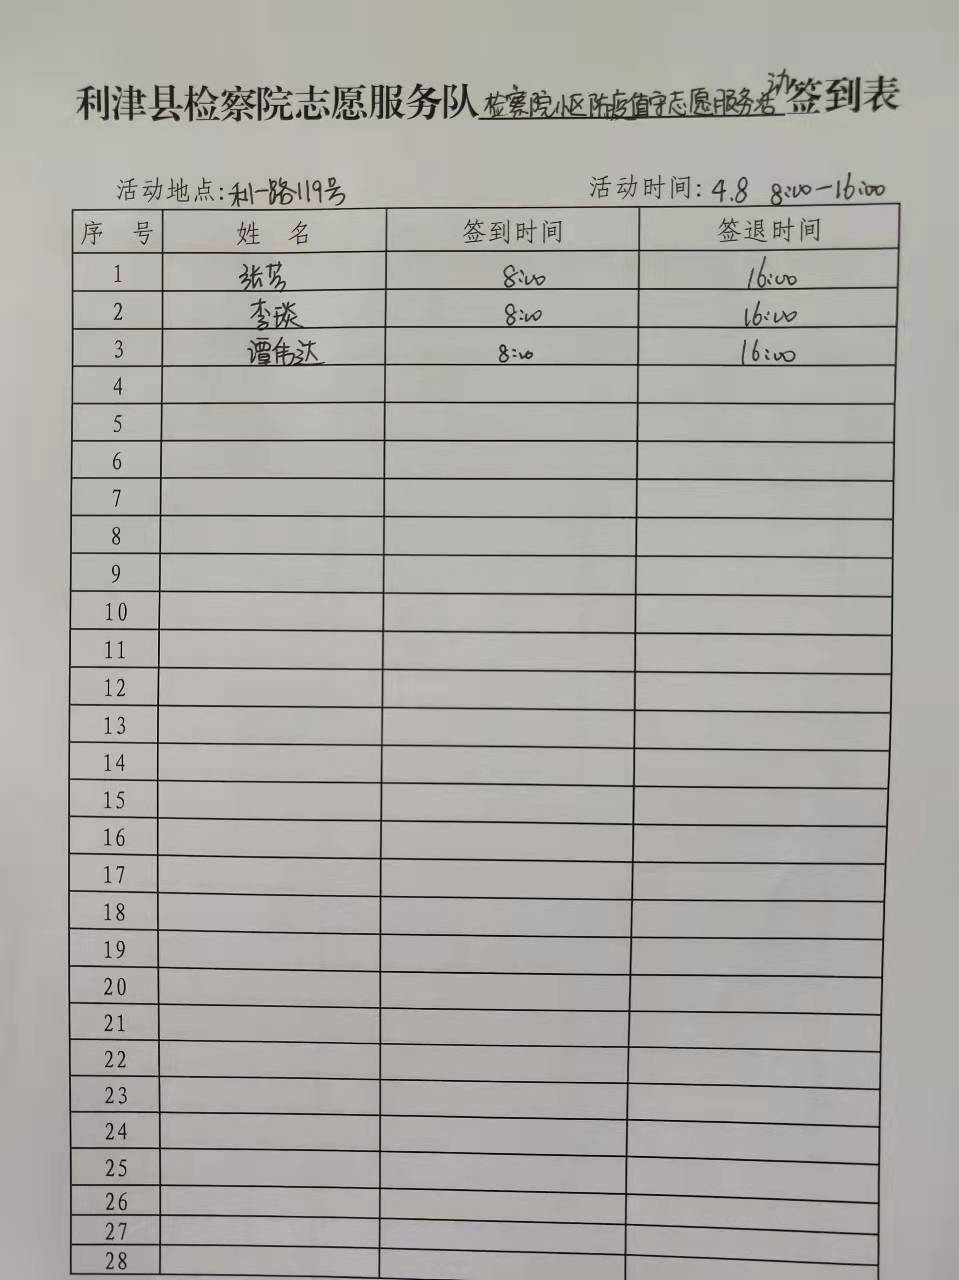 利津县检察院志愿服务队检察院小区防疫值守志愿服务活动签到表
活动地点:利一路119号 活动时间:4.8 8:00-16:00
序 号 姓 名 签到时间 签退时间
1 张芳 8:00 16:00
2 李琰 8:00 16:00
3 谭伟达 8:00 16:00
4
5
6
7
8
9
10
11
12
13
14
15
16
17
18
19
20
21
22
23
24
25
26
27
28